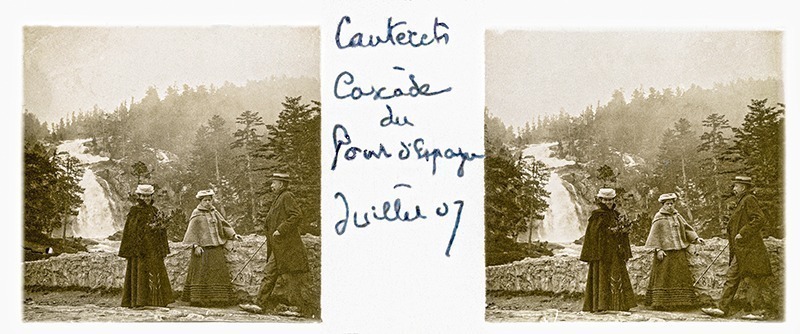 Cauterets
Cascade
du
Pont d'Espagne
Juillet 07